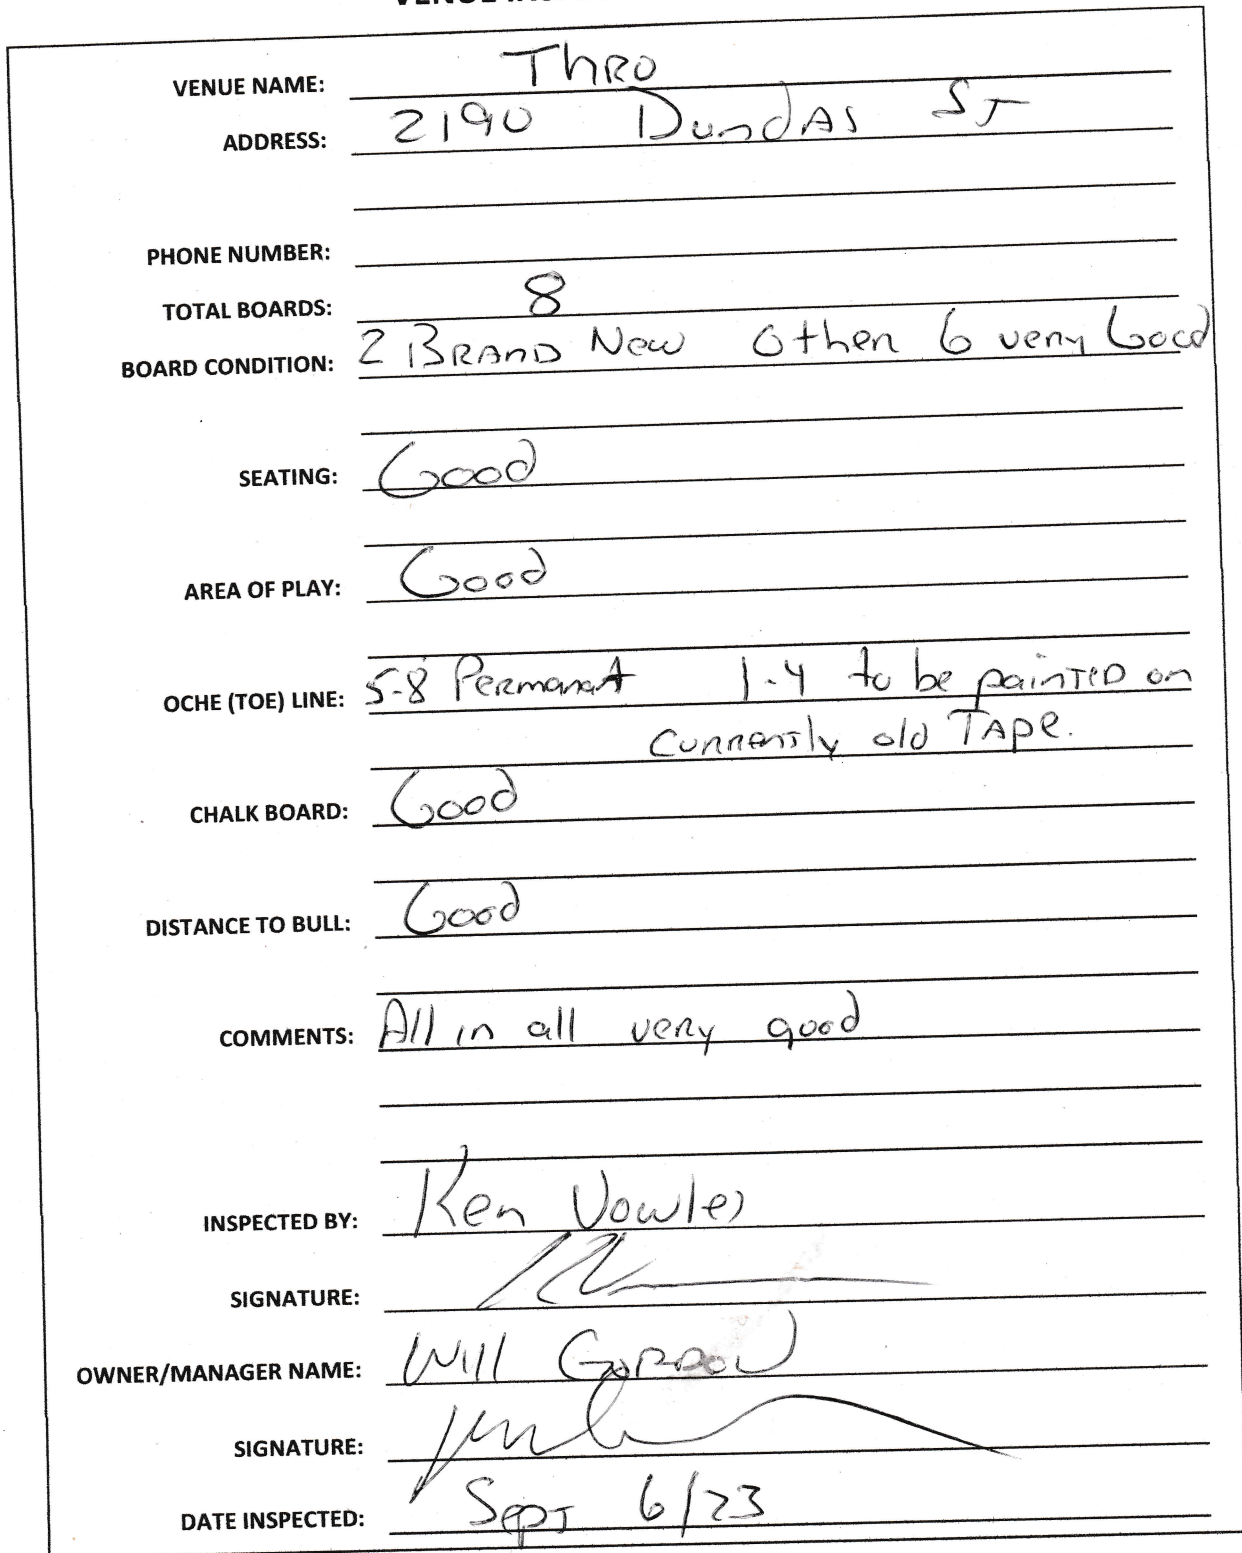 VENUE
VENUE NAME: Thro
ADDRESS: 2190 Dundas ST
PHONE NUMBER:
TOTAL BOARDS: 8
BOARD CONDITION: 2 BRAND New Other 6 very Good
SEATING: Good
AREA OF PLAY: Good
OCHE (TOE) LINE: 5-8 Permanant 1-4 to be painTED on
Currently old TAPE.
CHALK BOARD: Good
DISTANCE TO BULL: Good
COMMENTS: All in all very good
INSPECTED BY: Ken Vowles
SIGNATURE:
OWNER/MANAGER NAME: Will GORDON
SIGNATURE:
DATE INSPECTED: Sept 6/23